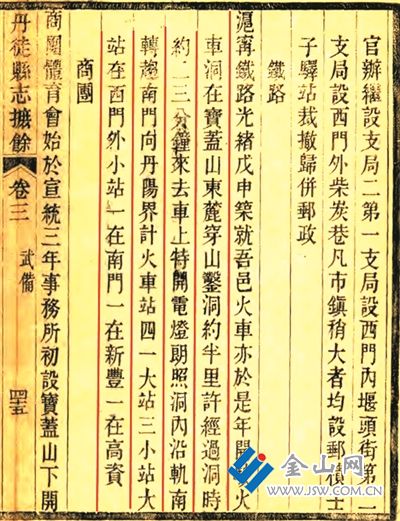 官辦繼設支局二第一支局設西門內堰頭街第二
支局設西門外柴炭巷凡市鎮稍大者均設郵櫃
子驛站裁撤歸併郵政
鐵路
滬寧鐵路光緒戊申築就吾邑火車亦於是年開
火車洞在寶蓋山東麓穿山鑿洞約半里許經過洞時
約二三分鐘來去車上特開電燈朗照洞內沿軌南
轉趨南門向丹陽界計火車站四一大站三小站大
站在西門外小站一在南門一在新豐一在高資
商團
商團體育會始於宣統三年事務所初設寶蓋山下開
丹徒縣志摭餘
卷三
武備
四十五
金山网
WWW.JSW.COM.CN